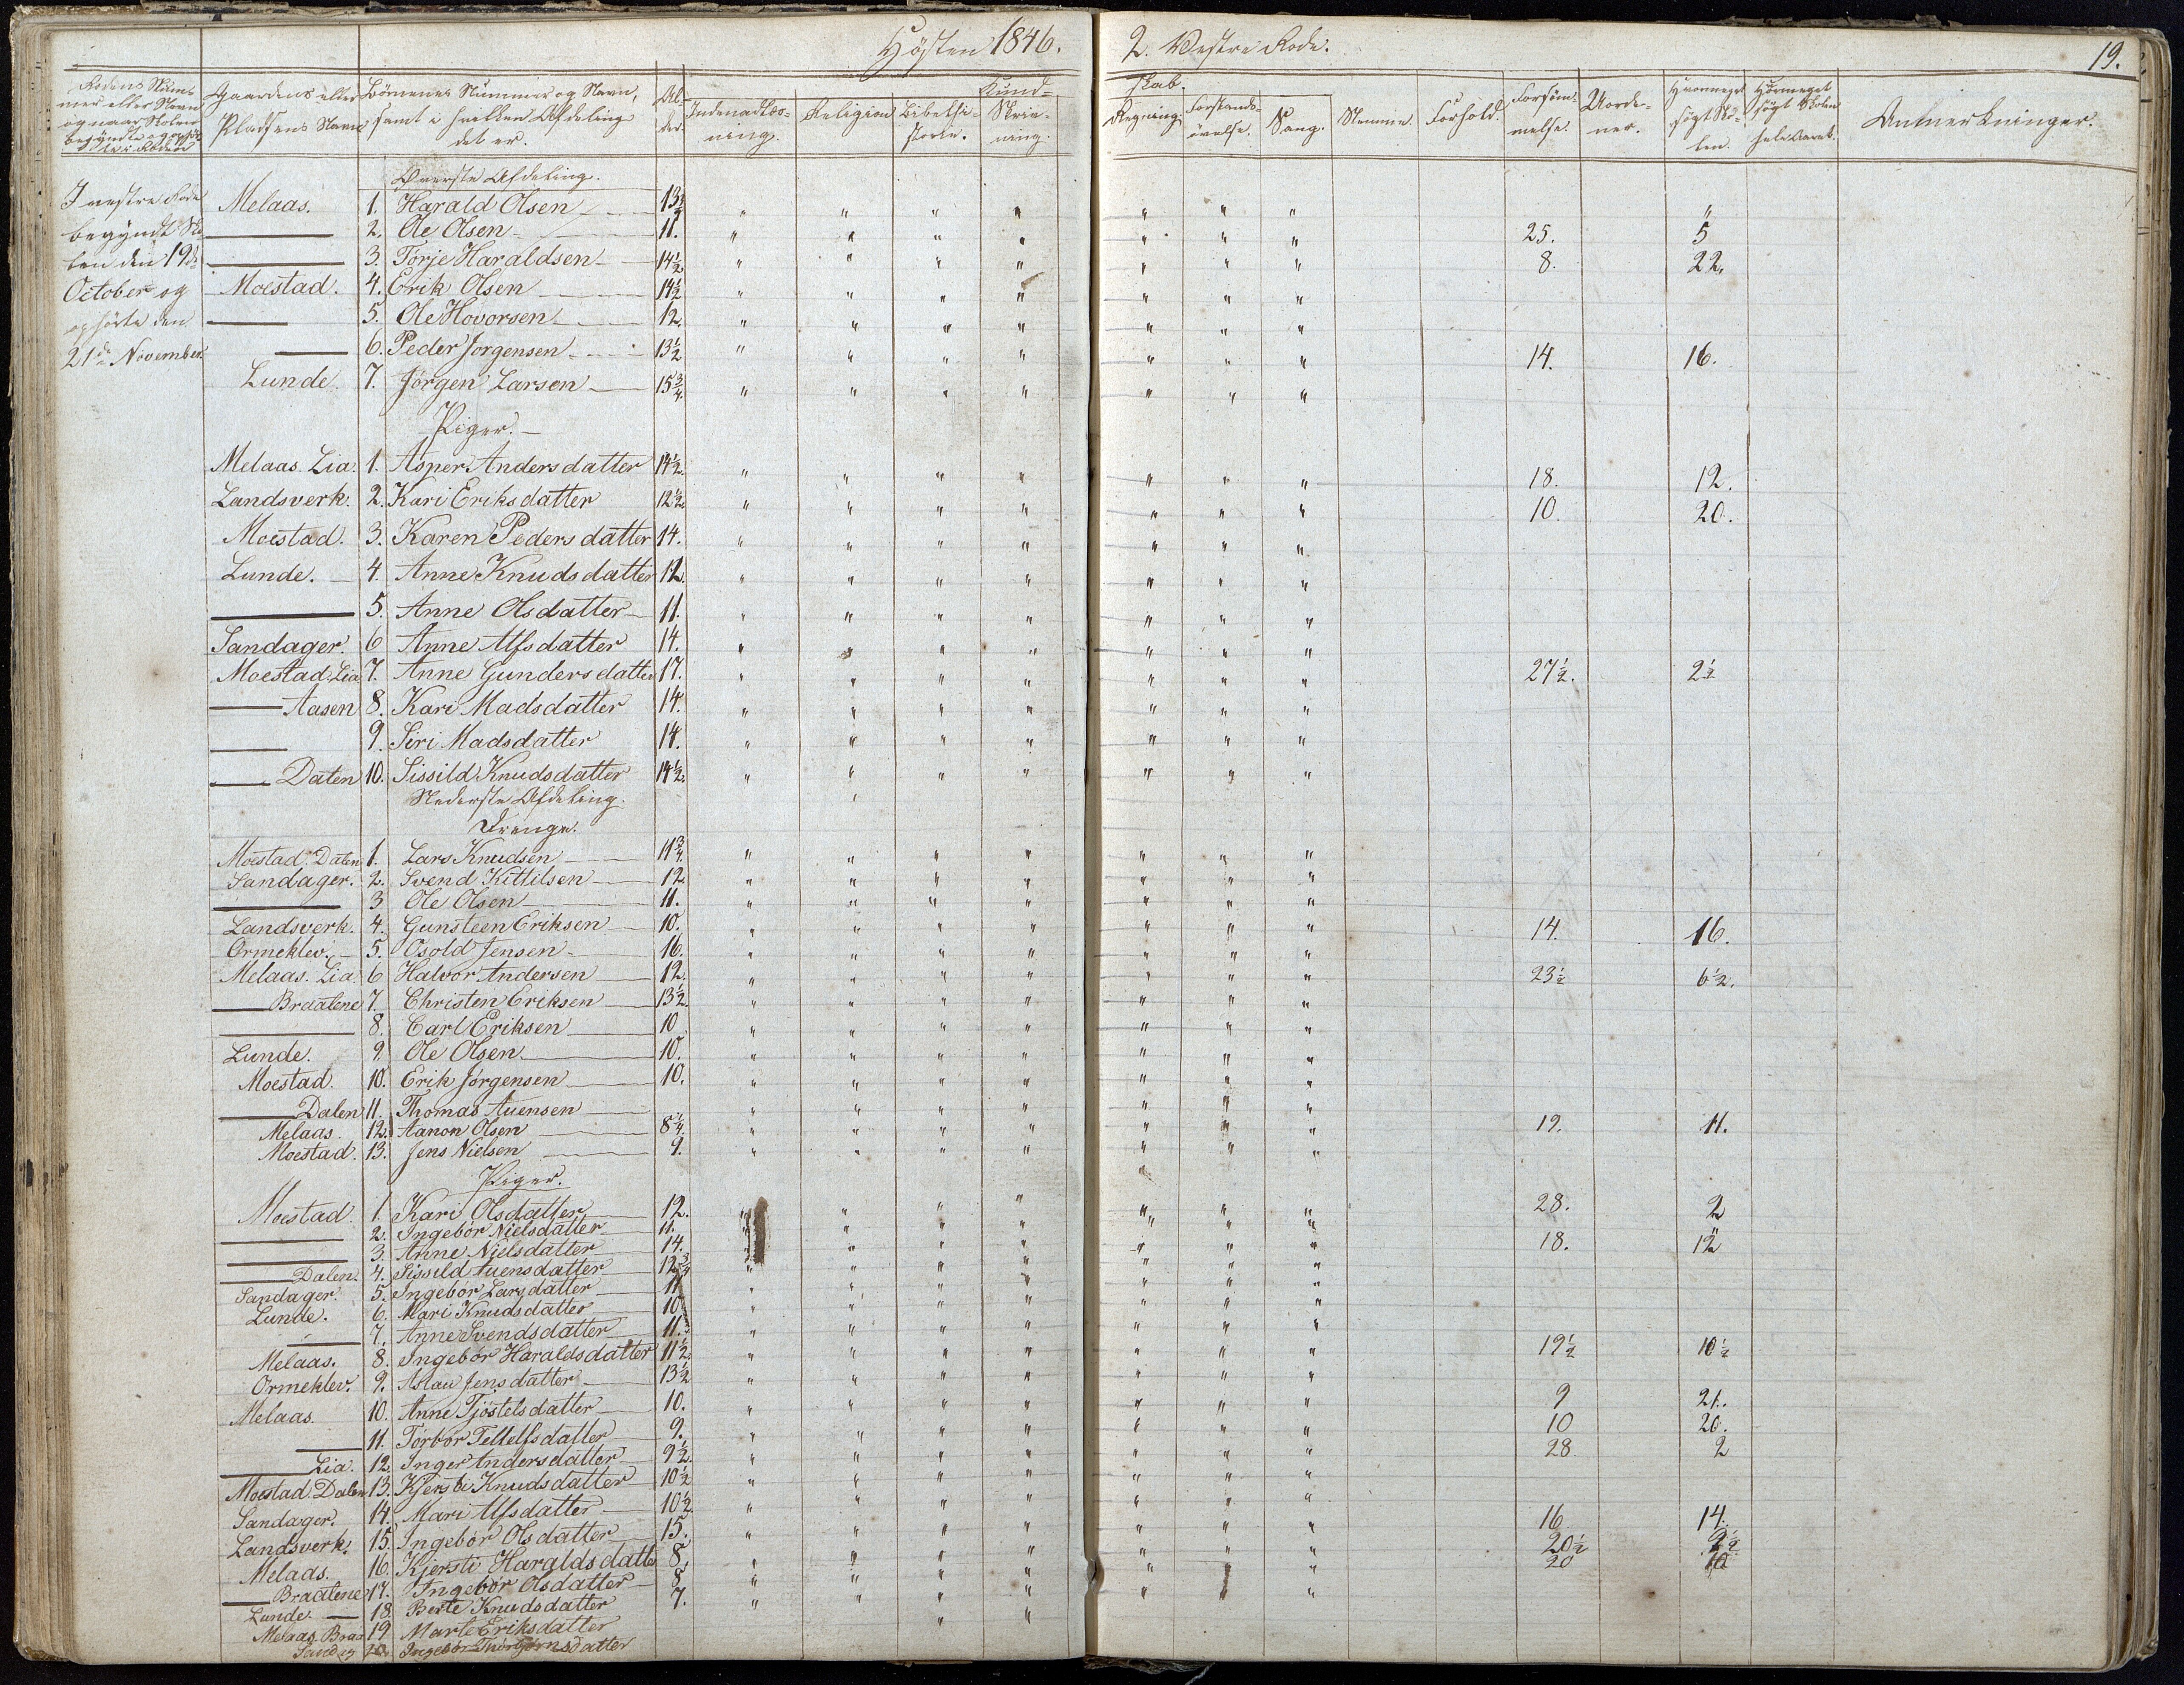 Høsten 1846.
2. Vestre Rode.
19.
Rodens Num-
mer eller Navn
og naar Skolen
begyndte og ophør-
te i Roden
Gaardens eller
Pladsens Navn
Børnenes Nummer og Navn,
samt i hvilken Afdeling
det er.
Al-
der.
Kund-
skab.
Indenadlæs-
ning.
Religion
Bibelhi-
storie.
Skriv-
ning.
Regning.
Forstands-
øvelse.
Sang.
Stemme.
Forhold.
Forsøm-
melse.
Uorde-
ner.
Hvormeget
søgt Sko-
len.
Hvormeget
søgt Skolen
hele Aaret.
Anmerkninger.
I vestre Rode
begyndt Sko-
len den 19de
October og
ophørte den
21de November.
Øverste Afdeling.
Melaas. 1. Harald Olsen 13½ " " " " " " " "
— 2. Ole Olsen 11. " " " " " " " 25. 5
— 3. Torje Haraldsen 14½ " " " " " " " 8. 22.
Moestad. 4. Erik Olsen 14½ " " " " " " "
— 5. Ole Hovorsen 12. " " " " " " "
— 6. Peder Jorgensen 13½ " " " " " " " 14. 16.
Lunde. 7. Jörgen Larsen 15¾. " " " " " " "
Piger.
Melaas. Lia. 1. Asper Andersdatter 14½. " " " " " " " 18. 12.
Landsverk. 2. Kari Eriksdatter 12½ " " " " " " " 10. 20.
Moestad. 3. Karen Pedersdatter 14. " " " " " " "
Lunde. 4. Anne Knudsdatter 12. " " " " " " "
— 5. Anne Olsdatter 11. " " " " " " "
Sandager. 6 Anne Alfsdatter 14. " " " " " " "
Moestad. Lia 7. Anne Gundersdatter 17. " " " " " " " 27½. 2½
— Aasen 8. Kari Madsdatter 14. " " " " " " "
— 9. Siri Madsdatter 14. " " " " " " "
— Dalen 10. Sissild Knudsdatter 14½. " " " " " " "
Nederste Afdeling.
Drenge.
Moestad. Dalen 1. Lars Knudsen 11¾. " " " " " " "
Sandager. 2. Svend Kittilsen 12. " " " " " " "
— 3 Ole Olsen 11. " " " " " " "
Landsverk. 4. Gunsteen Eriksen 10. " " " " " " " 14. 16.
Ormeklev. 5. Osold Jensen 16. " " " " " " "
Melaas. Lia. 6 Halvor Andersen 12. " " " " " " " 23½ 6½.
— Braatene 7. Christen Eriksen 13½. " " " " " " "
— 8. Carl Eriksen 10 " " " " " " "
Lunde. 9. Ole Olsen 10. " " " " " " "
Moestad. 10. Erik Jørgensen 10. " " " " " " "
— Dalen 11. Thomas Auensen " " " " " " "
Melaas. 12. Aanon Olsen 8¼. " " " " " " " 19. 11.
Moestad. 13. Jens Nielsen 9. " " " " " " "
Piger.
Moestad 1. Kari Olsdatter 12. " " " " " " " 28. 2
— 2. Ingebor Nielsdatter 11. " " " " " " "
— 3. Anne Nielsdatter 14. " " " " " " " 18. 12
— Dalen. 4. Sissild Auensdatter 12¾ " " " " " " "
Sandager. 5. Ingebor Larsdatter 11 " " " " " " "
Lunde. 6. Mari Knudsdatter 10 " " " " " " "
— 7. Anne Svendsdatter 11. " " " " " " "
Melaas. 8. Ingebor Haraldsdatter 11½. " " " " " " " 19½ 10½
Ormeklev. 9. Aslau Jensdatter 13½ " " " " " " "
Melaas. 10. Anne Tjöstelsdatter 10. " " " " " " " 9 21.
— 11. Torbor Tellefsdatter 9. " " " " " " " 10 20.
— Lia. 12. Inger Andersdatter 9½. " " " " " " " 28 2
Moestad. Dalen. 13. Kjersti Knudsdatter 10½ " " " " " " "
Sandager. 14. Mari Alfsdatter 10½. " " " " " " "
Landsverk. 15. Ingebor Olsdatter 15. " " " " " " " 16 14.
Melaas. 16. Kjersti Haraldsdatter 8. " " " " " " " 20½ 9½
— Braatene 17. Ingebor Olsdatter 8 " " " " " " " 20 10
Lunde. — 18. Berte Knudsdatter 7. " " " " " " "
Melaas. Braa 19 Marte Eriksdatter " "
Sandag 20. Ingebor Thorbjørnsdatter